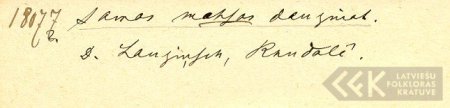 18077 Samas maksas dauginat.
D. Lauginsch, Rundalē.
LATVIEŠU
FOLKLORAS
KRĀTUVE